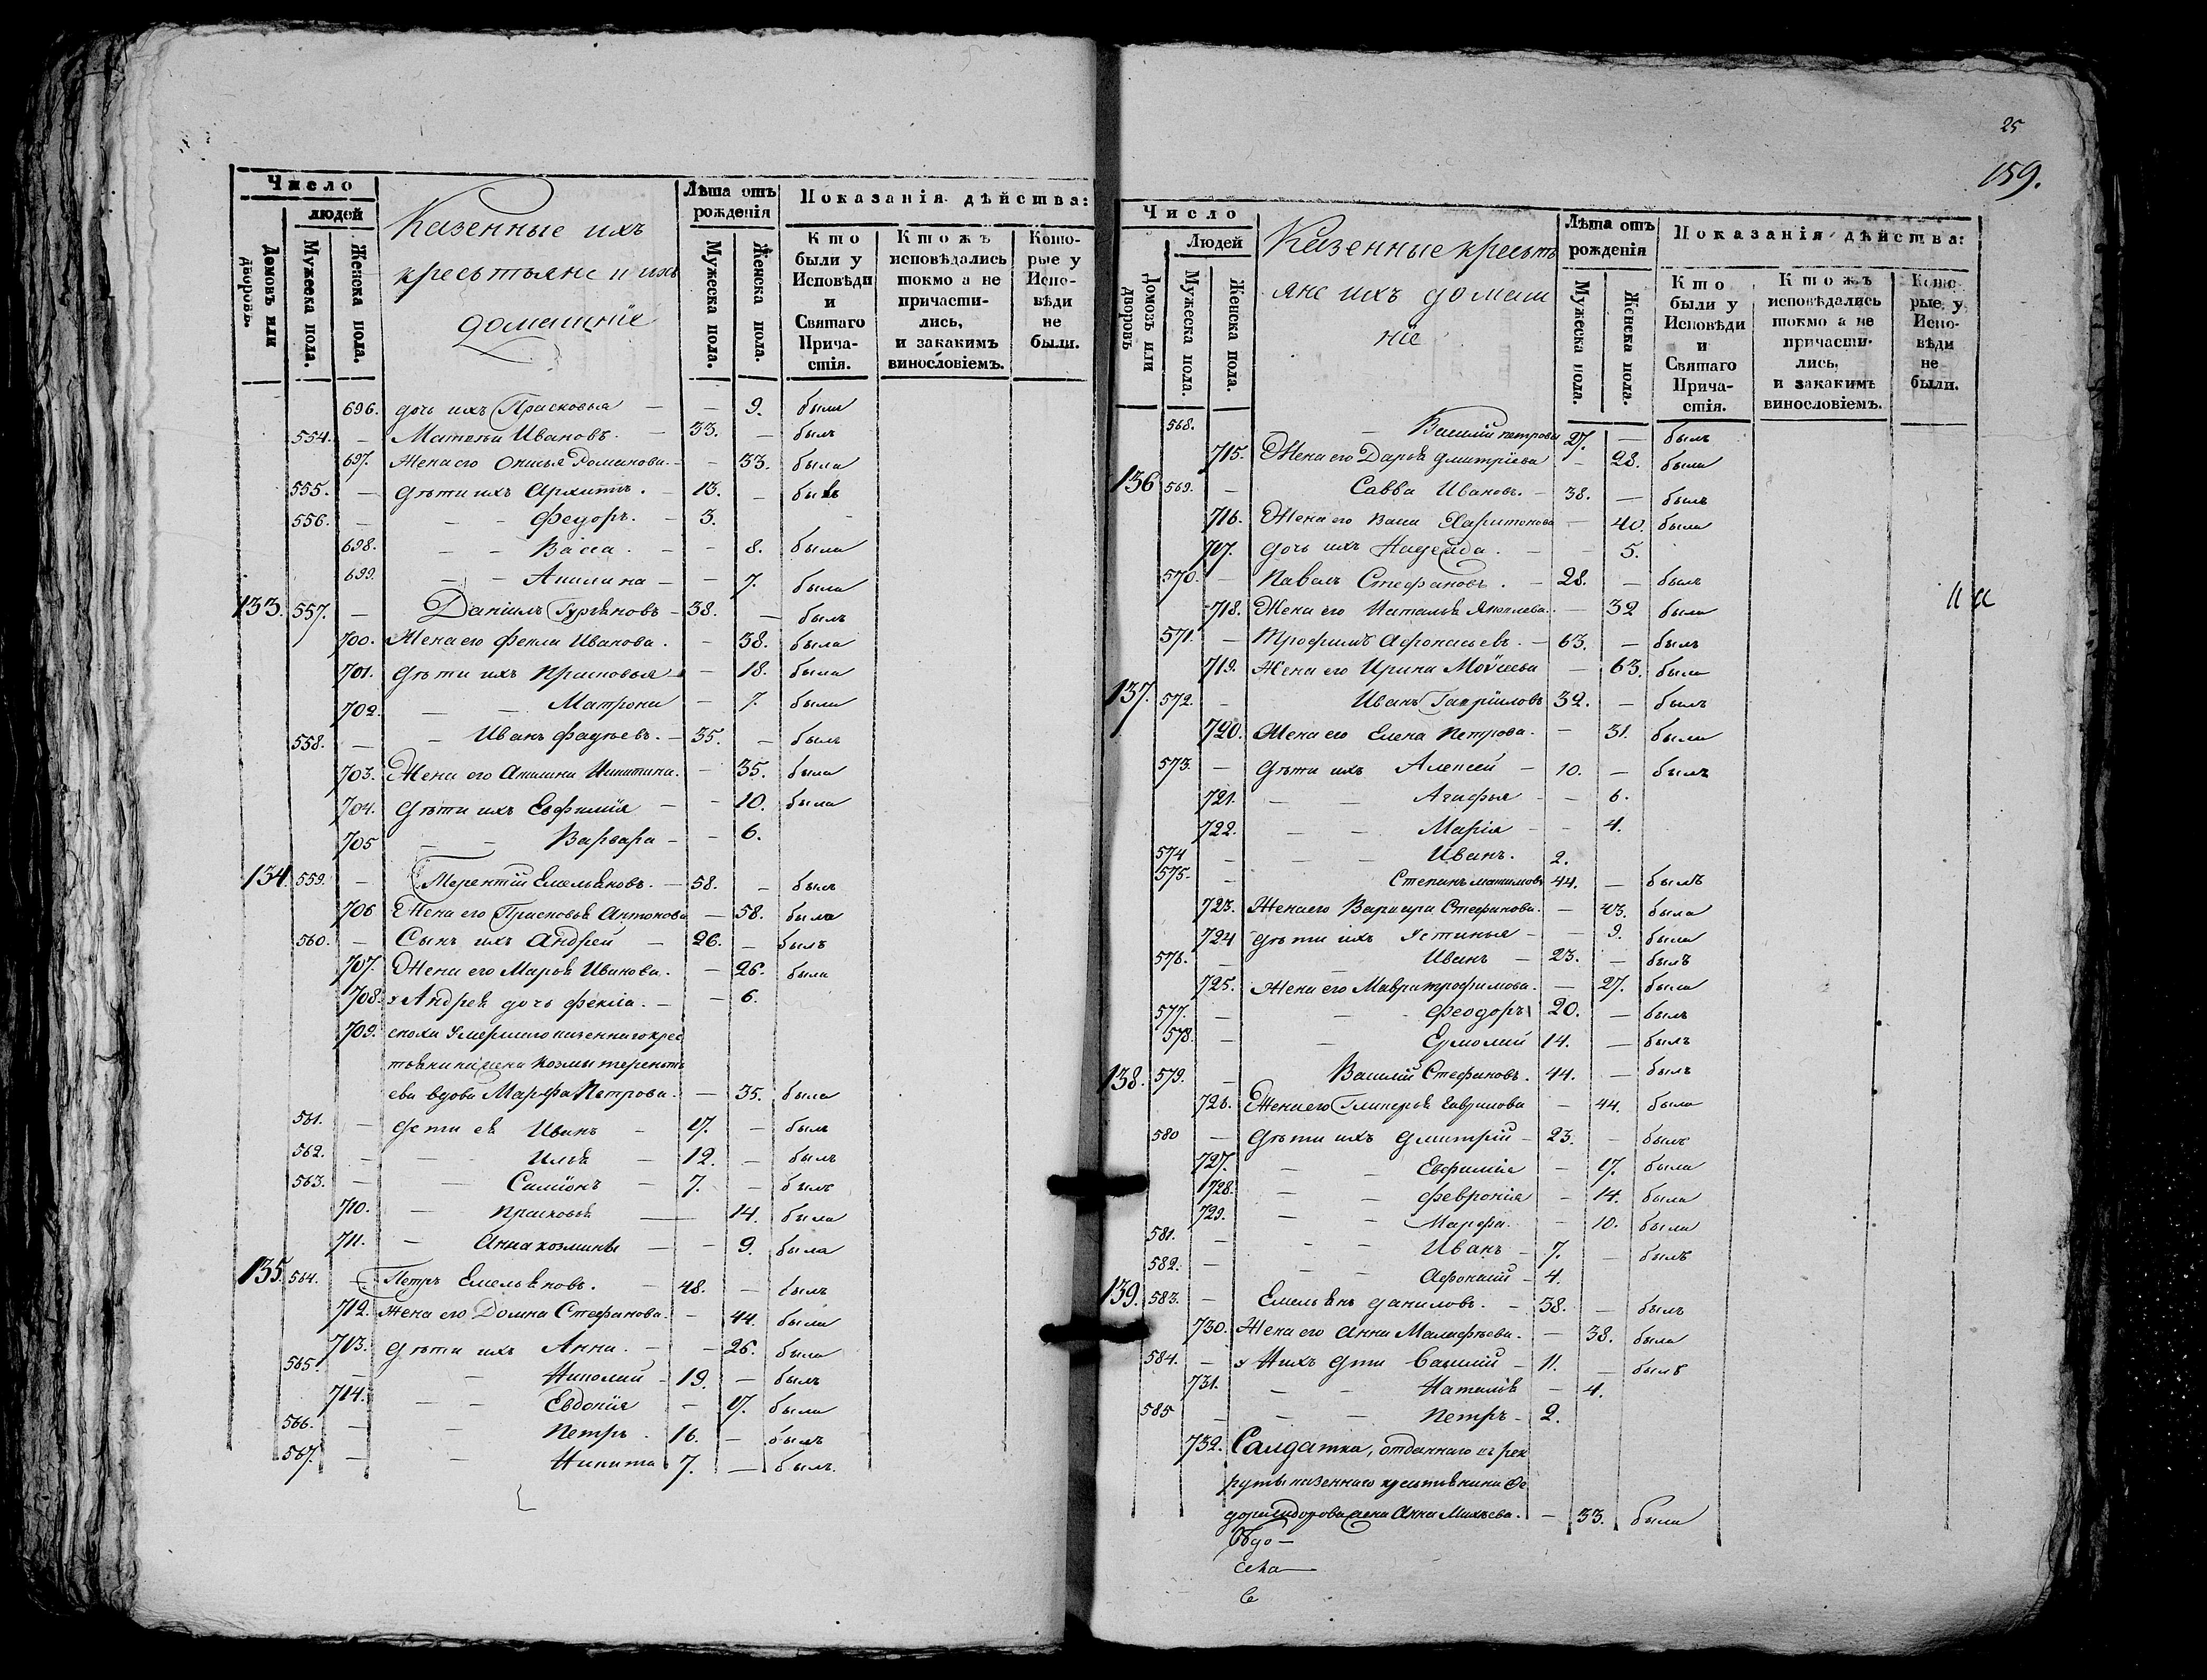 Число
людей
Домовъ или дворовъ.
Мужеска пола.
Женска пола.
Казенные ихъ
крестьяне и ихъ
домашніе
Лѣта отъ рожденія
Мужеска пола.
Женска пола.
Показанія дѣйства:
Кто были у Исповѣди и Святаго Причастія.
Ктожъ исповѣдались токмо а не причастились, и закакимъ винословіемъ.
Которые у Исповѣди не были.
696. дочь ихъ Прасковья — — 9. была
554. — Матвѣй Ивановъ. — 33. — былъ
697. Жена его Онисья Романова. — — 33. была
555. — Дѣти ихъ Архипъ. — 13. — былъ
556. — — — Федоръ. — 3.
698. — — Васса. — — 8. была
699. — — Акилина — — 7. была
133. 557. — Даніилъ Гурьяновъ — 38. — былъ
700. Жена его Фекла Иванова. — 38. была
701. Дѣти ихъ Прасковья — — 18. была
702. — — Матрона — 7. была
558. — — Иванъ Фадѣевъ. — 35. — былъ
703. Жена его Акилина Никитина. — 35. была
704. Дѣти ихъ Евфимія — — 10. была
705 — — Варвара — — 6.
134. 559. — Терентій Емельяновъ. — 58. — былъ
706 Жена его Прасковья Антонова — 58. была
560. — Сынъ ихъ Андрей — 26. — былъ
707. Жена его Марья Иванова. — 26. была
708. у Андрея дочь Фекла. — — 6.
709. снохи умершаго казеннаго крес
тьянина жена Козмы Теренть
ева вдова Марфа Петрова. — 35. была
561. — Дети ея Иванъ — 17. — былъ
562. — — Илья — 12. — былъ
563. — — Самсонъ — 7. — былъ
710. — Прасковья — 14. была
711. — Анна Козмины — — 9. была
135. 564. — Петръ Емельяновъ. — 48. — былъ
712. Жена его Домна Стефанова. — 44. была
713. Дѣти ихъ Анна. — — 26. была
565. — — Николай — 19. — былъ
714. — — Евдокія — 17. была
566. — — Петръ. 16. — былъ
567. — — Никита 7. — былъ.
25
159.
Число
Людей
Домовъ или дворовъ
Мужеска пола.
Женска пола.
Казенные крестъ
яне ихъ домаш
ніе
Лѣта отъ рожденія
Мужеска пола.
Женска пола.
Показанія дѣйства:
Кто были у Исповѣди и Святаго Причастія.
Ктожъ исповѣдались токмо а не причастились, и закакимъ винословіемъ.
Которые у Исповѣди не были.
568. — Василій Петровъ 27. — былъ
715. Жена его Дарья Дмитріева — 28. была
136 569. — Савва Ивановъ. — 38. — былъ
716. Жена его Васса Харитонова — 40. была
717. Дочь ихъ Надежда. — — 5.
570. — Павелъ Стефановъ. — 28. — былъ
718. Жена его Наталья Яковлева. — 32 была
571. — Трофимъ Афонасьевъ. — 63. — былъ
719. Жена его Ирина Моисеева — 63. была
137. 572. — Иванъ Гавриловъ 32. — былъ
720. Жена его Елена Петрова. — 31. была
573. — Дѣти ихъ Алексей — 10. — былъ
721. — — Агафья — — 6.
722. — — Марія — — 4.
574 — — — Иванъ. 2.
575. — Степанъ Максимовъ 44. — былъ
723. Жена его Варвара Стефанова. — 43. была
724 Дѣти ихъ Устинья — — 9. была
576. — — Иванъ — 23. — былъ
725. Жена его Мавра Трофимова. — 27. была
577. — — Феодоръ 20. — былъ
578. — — Ермолай 14. — былъ
138. 579. — Василій Стефановъ. 44. — былъ
726. Жена его Гликерья Гаврилова — 44. была
580 — Дѣти ихъ Дмитрій — 23. — былъ
727. — — Евфимія — 17. была
728. — — Февронія — 14. была
729. — — Марфа. — 10. была
581. — — — Иванъ — 7. — былъ
582. — — — Афонасій — 4.
139. 583. — Емельянъ Даниловъ. — 38. — былъ
730. Жена его Анна Малафѣева. — 38. была
584. — у Нихъ дѣти Василій — 11. — былъ
731. — — Наталія — 4.
585 — — — Петръ — 2.
732. Салдатка, отданнаго въ рек
руты казеннаго крестьянина Фе
дора Сидорова жена Анна Михѣева. — 33. была